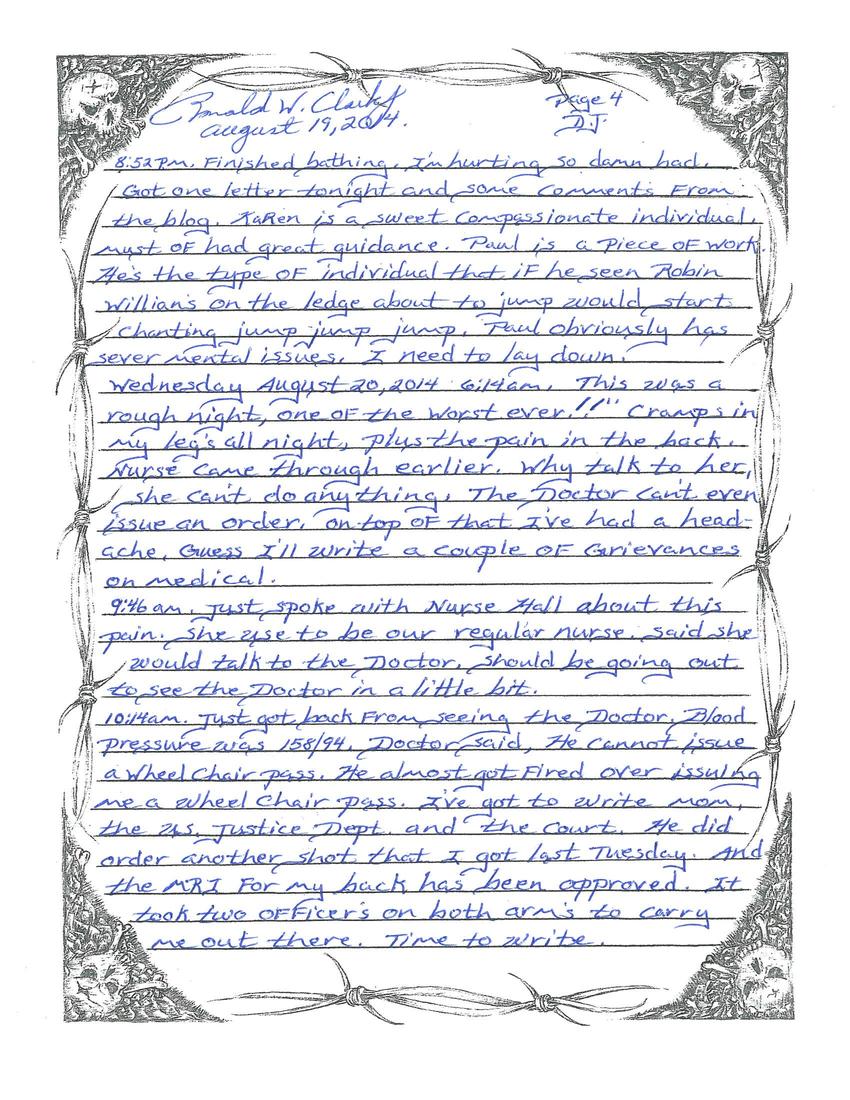 Ronald W. Clark Jr
Page 4
August 19, 2014.
D.J.
8:52pm. Finished bathing. I'm hurting so damn bad.
Got one letter tonight and some comments From
the blog. KaRen is a sweet compassionate individual.
must OF had great guidance. Paul is a piece OF work.
He's the type OF individual that iF he seen Robin
Willian's on the ledge about to jump would start
chanting jump jump jump. Paul obviously has
sever mental issues. I need to lay down.
Wednesday August 20, 2014 6:14am. This was a
rough night, one OF the worst ever!!" Cramps in
my leg's all night, plus the pain in the back.
Nurse came through earlier. Why talk to her,
she can't do anything. The Doctor can't even
issue an order. on top OF that I've had a head-
ache. Guess I'll write a couple OF Grievances
on medical.
9:46 am. Just spoke with Nurse Hall about this
pain. She use to be our regular nurse. said she
would talk to the Doctor. should be going out
to see the Doctor in a little bit.
10:14am. Just got back From seeing the Doctor. Blood
pressure was 158/94. Doctor said, He cannot issue
a wheel chair pass. He almost got Fired over issuing
me a wheel chair pass. I've got to write mom,
the U.S. Justice Dept. and the court. He did
order another shot that I got last Tuesday. And
the MRI For my back has been approved. It
took two oFFicer's on both arm's to carry
me out there. Time to write.